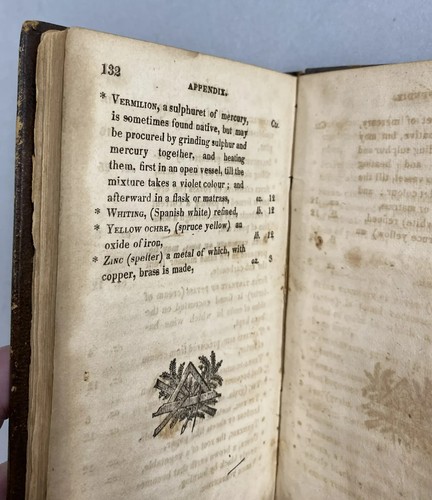 132
APPENDIX.
Cts.
* VERMILION, a sulphuret of mercury,
is sometimes found native, but may
be procured by grinding sulphur and
mercury together, and heating
them, first in an open vessel, till the
mixture takes a violet colour; and
afterward in a flask or matrass, oz. 12
* WHITING, (Spanish white) refined, lb. 12
* YELLOW OCHRE, (spruce yellow) an
oxide of iron, lb. 12
* ZINC (spelter) a metal of which, with
copper, brass is made, oz. 3